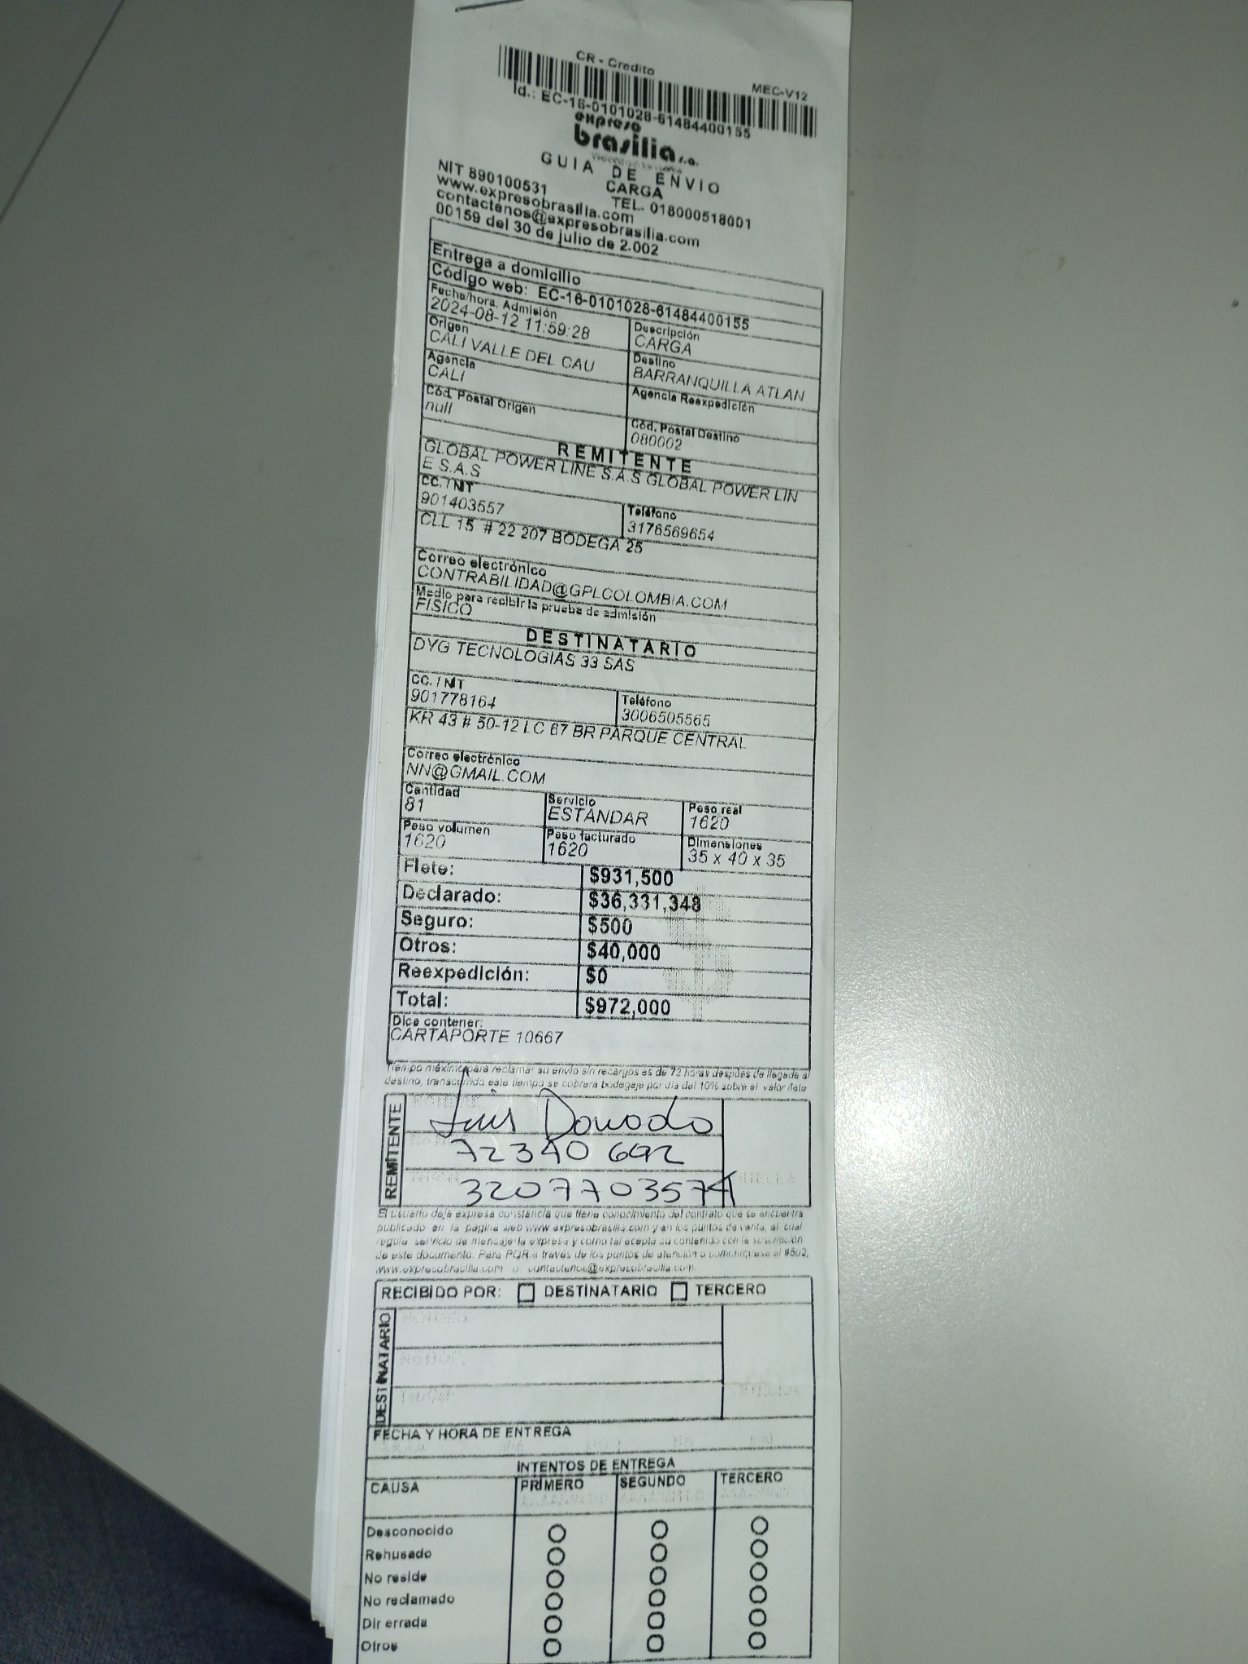 CR - Credito
MEC-V12
Id.: EC-16-0101028-61484400155
expreso
brasilia s.a.
GUIA DE ENVIO
CARGA
NIT 890100531
TEL. 018000518001
www.expresobrasilia.com
contactenos@expresobrasilia.com
00159 del 30 de julio de 2.002
Entrega a domicilio
Código web: EC-16-0101028-61484400155
Fecha/hora. Admisión
2024-08-12 11:59:28
Descripción
CARGA
Origen
CALI VALLE DEL CAU
Destino
BARRANQUILLA ATLAN
Agencia
CALI
Agencia Reexpedición
Cód. Postal Origen
null
Cód. Postal Destino
080002
REMITENTE
GLOBAL POWER LINE S.A.S GLOBAL POWER LIN
E S.A.S
CC. / NIT
901403557
Teléfono
3176569654
CLL 15 # 22 207 BODEGA 25
Correo electrónico
CONTRABILIDAD@GPLCOLOMBIA.COM
Medio para recibir la prueba de admisión
FISICO
DESTINATARIO
DYG TECNOLOGIAS 33 SAS
CC. / NIT
901778164
Teléfono
3006505565
KR 43 # 50-12 LC 67 BR PARQUE CENTRAL
Correo electrónico
NN@GMAIL.COM
Cantidad
81
Servicio
ESTÁNDAR
Peso real
1620
Peso volumen
1620
Peso facturado
1620
Dimensiones
35 x 40 x 35
Flete: $931,500
Declarado: $36,331,348
Seguro: $500
Otros: $40,000
Reexpedición: $0
Total: $972,000
Dice contener:
CARTAPORTE 10667
Tiempo máximo para reclamar su envío sin recargos es de 72 horas después de llegado al
destino, transcurrido este tiempo se cobrará bodegaje por día del 10% sobre el valor flete
REMITENTE
Luis Donado
72340692
3207703574
El usuario deja expresa constancia que tiene conocimiento del contrato que se encuentra
publicado en la pagina web www.expresobrasilia.com y en los puntos de venta, el cual
regula servicio de mensajería expresa y como tal acepta su contenido con la suscripción
de este documento. Para PQR a través de los puntos de atención o comuniquese al #502,
www.expresobrasilia.com o contactenos@expresobrasilia.com
RECIBIDO POR: DESTINATARIO TERCERO
DESTINATARIO
FECHA Y HORA DE ENTREGA
INTENTOS DE ENTREGA
CAUSA PRIMERO SEGUNDO TERCERO
Desconocido
Rehusado
No reside
No reclamado
Dir errada
Otros